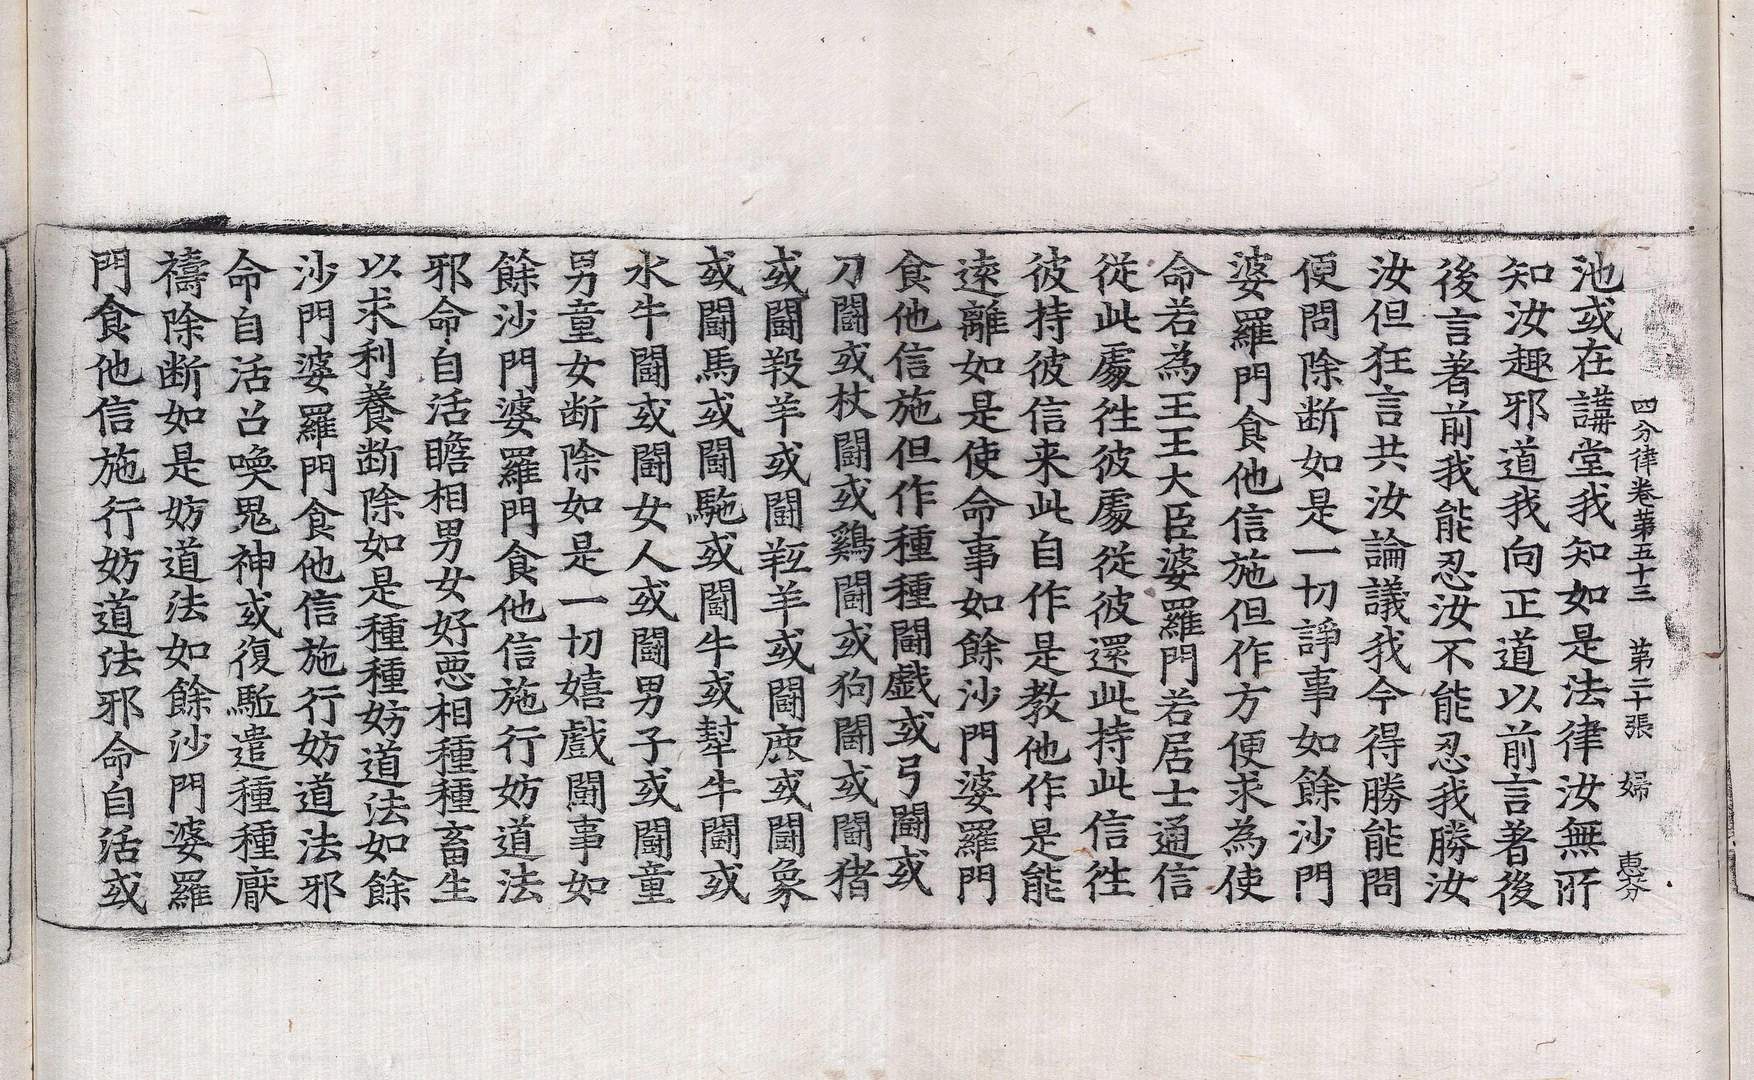 四分律卷第五十三 第二十張 婦 惠芬
池或在講堂我知如是法律汝無所
知汝趣邪道我向正道以前言著後
後言著前我能忍汝不能忍我勝汝
汝但狂言共汝論議我今得勝能問
便問除断如是一切諍事如餘沙門
婆羅門食他信施但作方便求為使
命若為王王大臣婆羅門若居士通信
從此處徃彼處從彼還此持此信徃
彼持彼信来此自作是教他作是能
遠離如是使命事如餘沙門婆羅門
食他信施但作種種鬪戲或弓鬪或
刀鬪或杖鬪或鷄鬪或狗鬪或鬪猪
或鬪羖羊或鬪羝羊或鬪鹿或鬪象
或鬪馬或鬪駞或鬪牛或犎牛鬪或
水牛鬪或鬪女人或鬪男子或鬪童
男童女断除如是一切嬉戲鬪事如
餘沙門婆羅門食他信施行妨道法
邪命自活瞻相男女好惡相種種畜生
以求利養断除如是種種妨道法如餘
沙門婆羅門食他信施行妨道法邪
命自活召喚鬼神或復駈遣種種厭
禱除断如是妨道法如餘沙門婆羅
門食他信施行妨道法邪命自活或